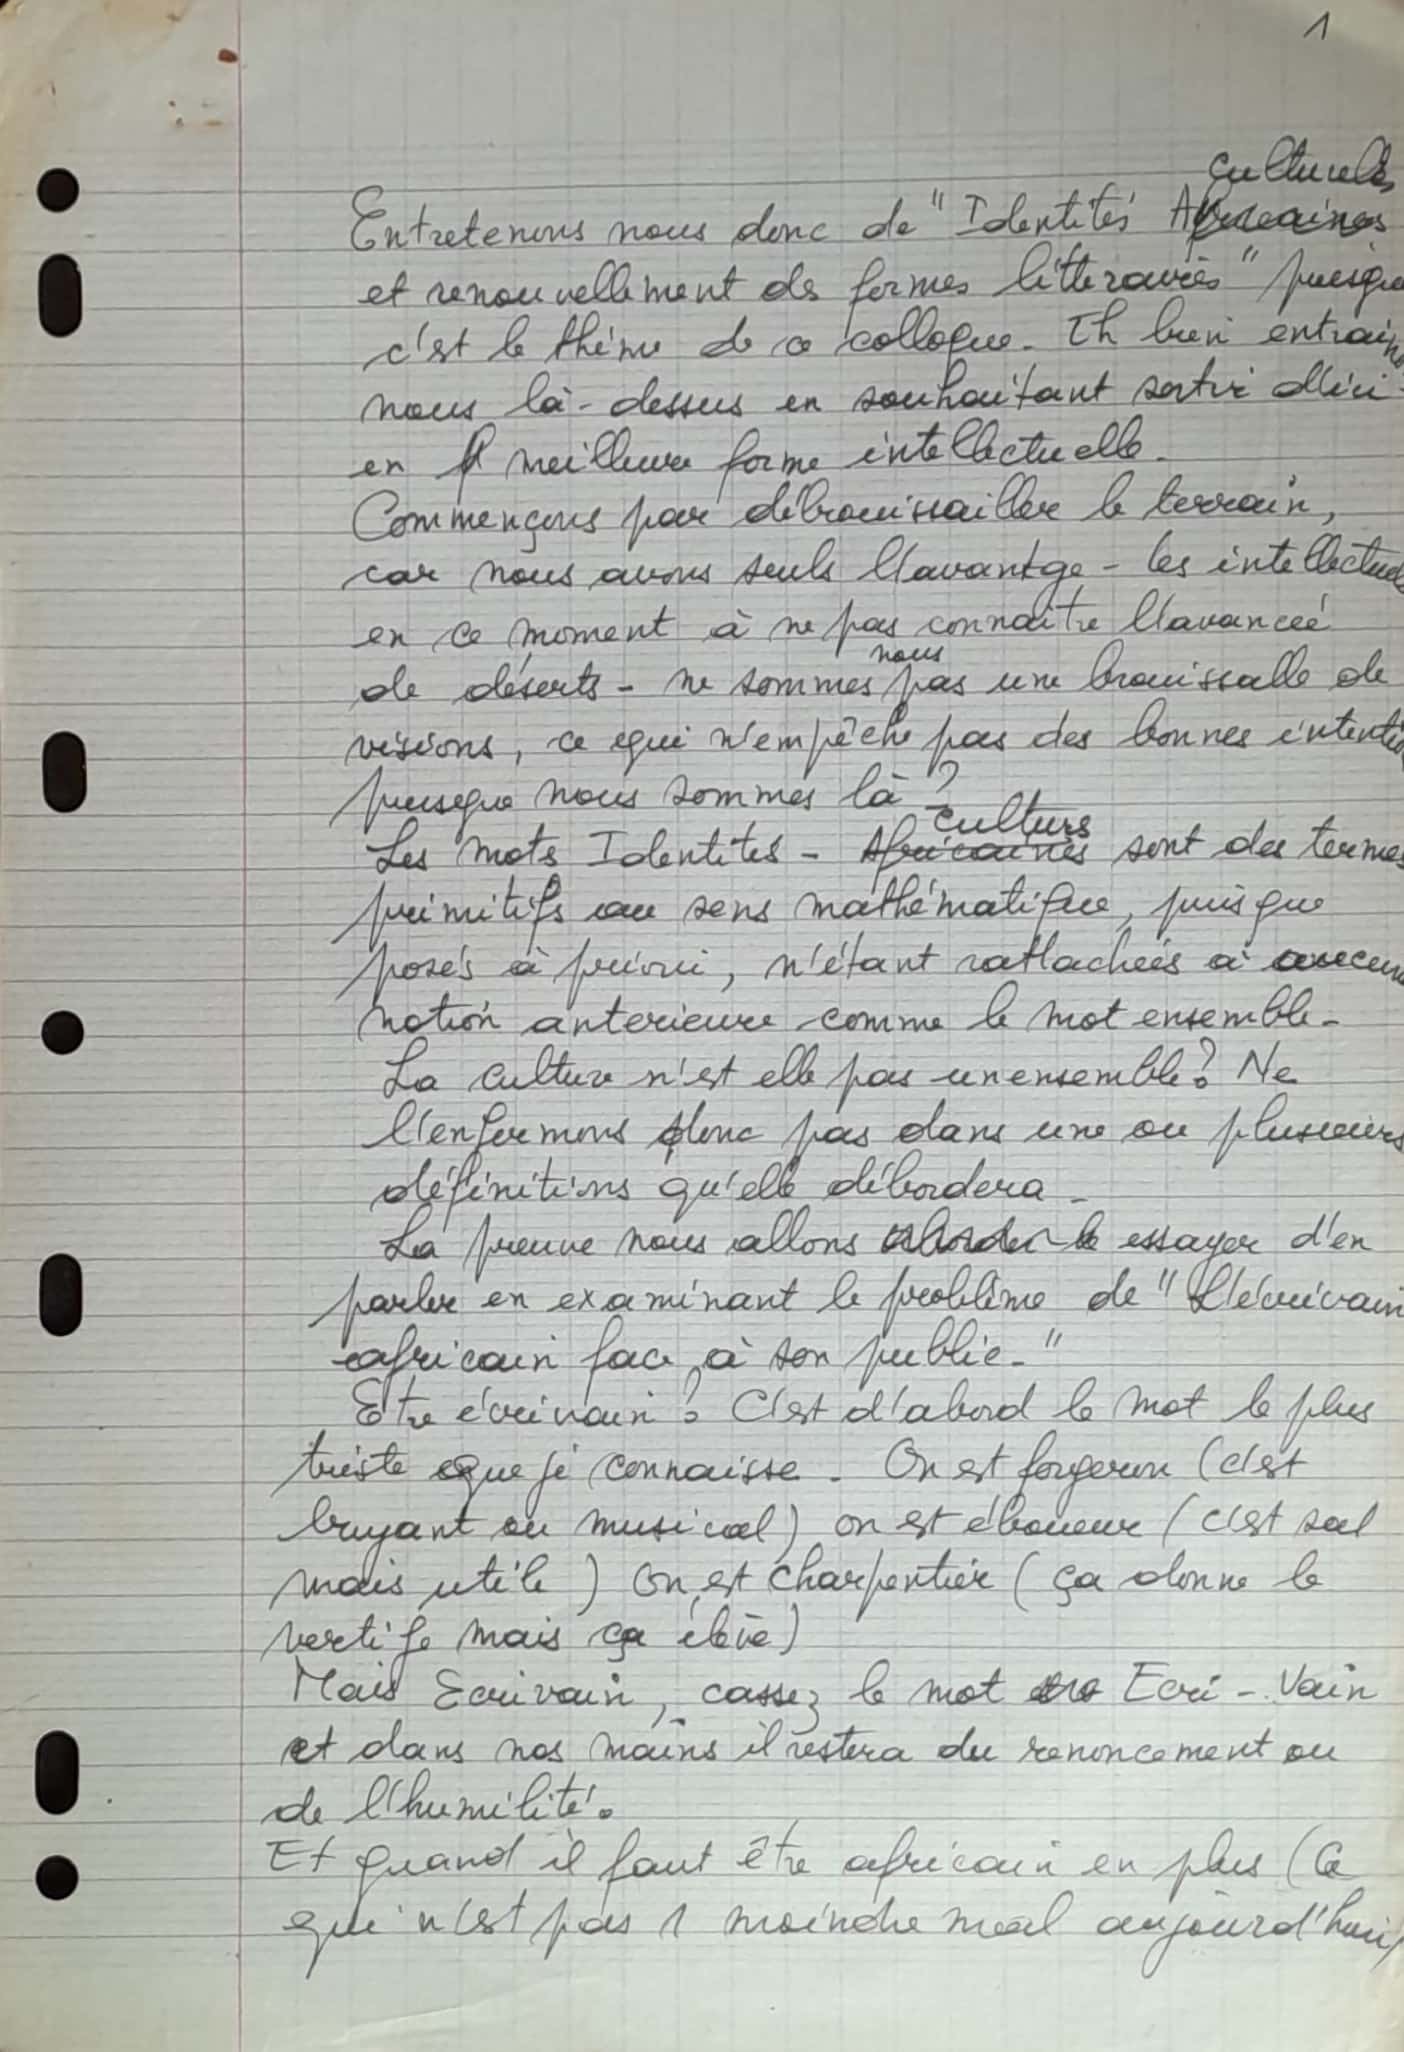 1
culturelles
Entretenons nous donc de "Identités Africaines
et renouvellement de formes littéraires" puisque
c'est le thème de ce colloque. Eh bien entrainons
nous là-dessus en souhaitant sortir d'ici
en meilleure forme intellectuelle.
Commençons par débrouissailler le terrain,
car nous avons seuls l'avantge - les intellectuels
en ce moment à ne pas connaître l'avancée
nous
de déserts - ne sommes pas une brouissalle de
visions, ce qui n'empêche pas des bonnes intentions
puisque nous sommes là ?
culturs
Les mots Identités - Africaines sont des termes
primitifs au sens mathématique, puisque
posés à priori, n'étant rattachés à aucune
notion anterieure comme le mot ensemble -
La culture n'est elle pas un ensemble ? Ne
l'enfermons donc pas dans une ou plusieurs
définitions qu'elle débordera -
La preuve nous allons aborder le essayer d'en
parler en examinant le problème de "L'écrivain
africain face à son public - "
Etre écrivain ? C'est d'abord le mot le plus
triste que je connaisse . On est forgeron (c'est
bruyant ou musical) on est éboueur (c'est sal
mais utile ) On est charpentier (ça donne le
vertige mais ça élève)
Mais Ecrivain, cassez le mot Ecri - Vain
et dans nos mains il restera du renoncement ou
de l'humilité.
Et quand il faut être africain en plus (Ce
qui n'est pas 1 moindre mal aujourd'hui)